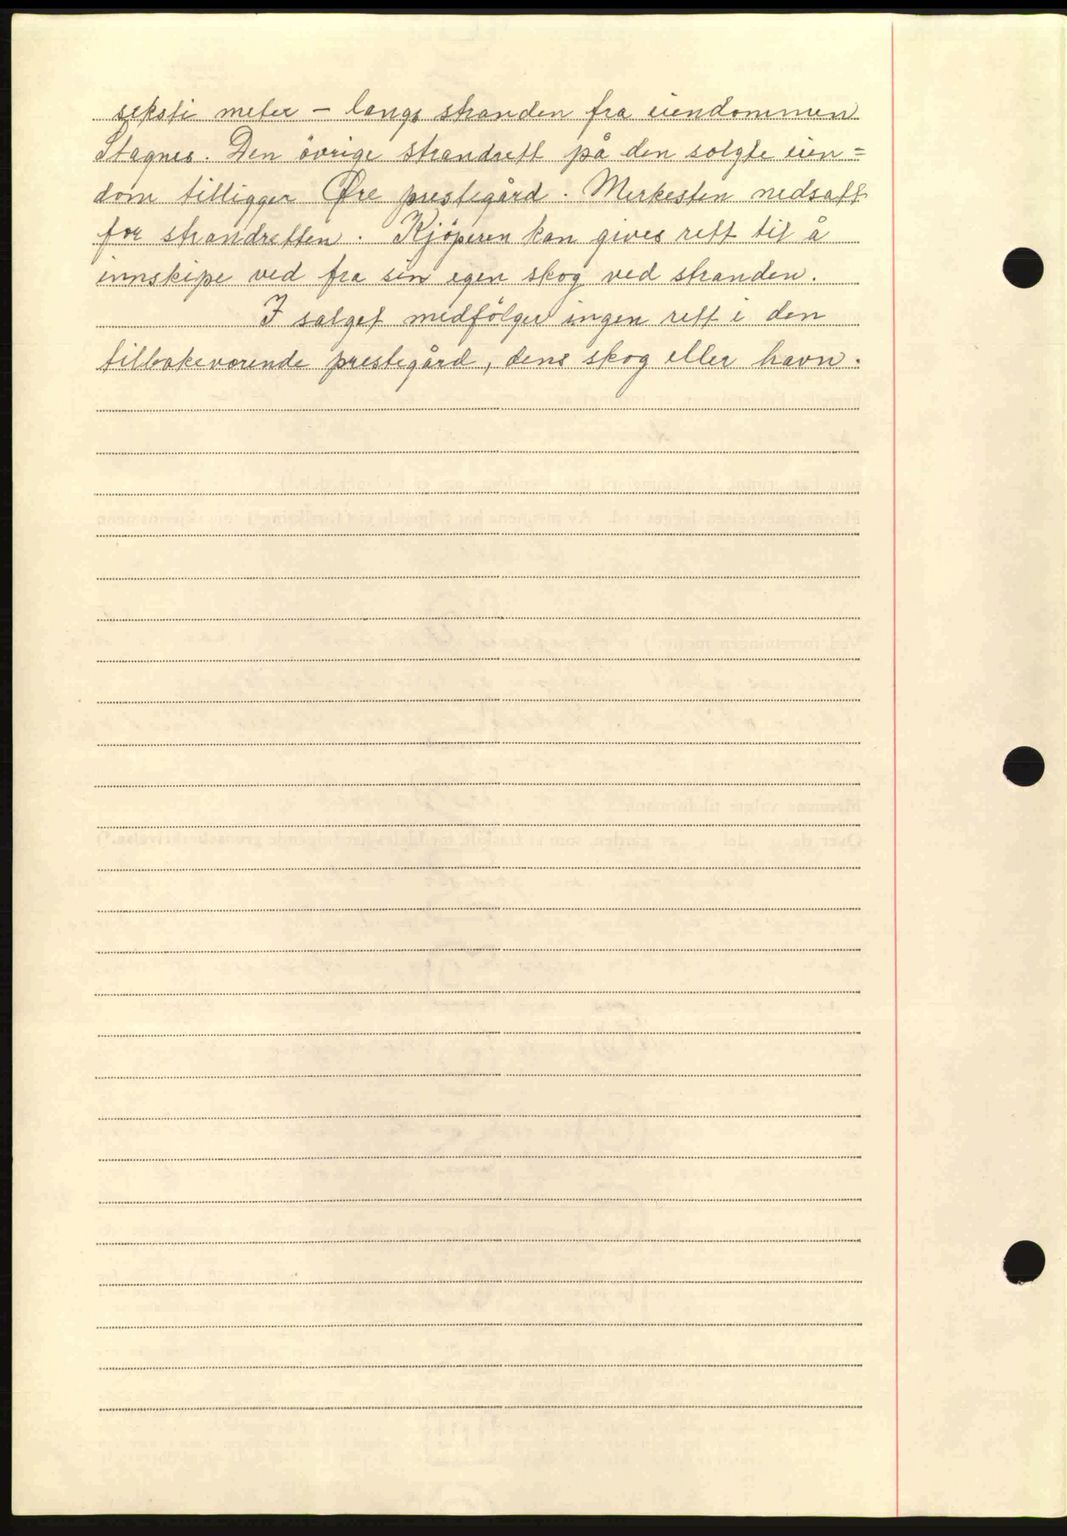 seksti meter – langs stranden fra eiendommen
Stagnes. Den övrige strandrett på den solgte eien=
dom tilligger Øre prestegård. Merkesten nedsatt
for strandretten. Kjöperen kan gives rett til å
innskipe ved fra sin egen skog ved stranden.
I salget medfölger ingen rett i den
tilbakeværende prestegård, dens skog eller havn.